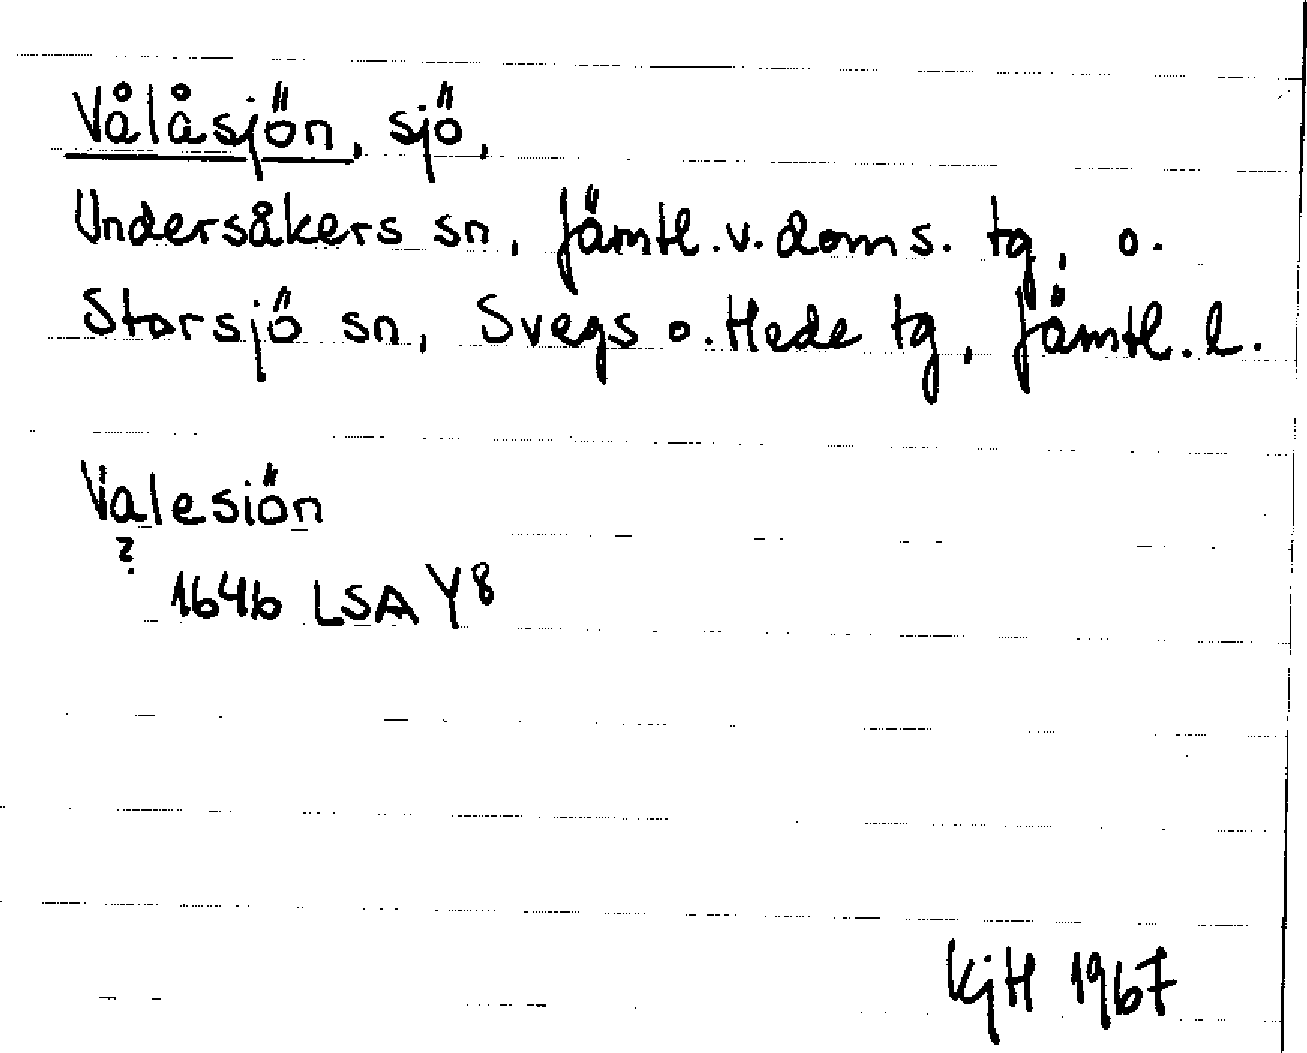 Vålåsjön, sjö,
Undersåkers sn, Jämtl.v.doms. tg, o.
Storsjö sn, Svegs o. Hede tg, Jämtl. l.
Valesiön
?
1646 LSA Y8
KjH 1967